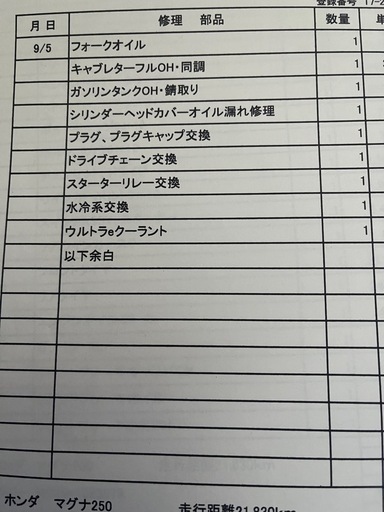 登録番号
月 日 修理 部品 数量
9/5 フォークオイル 1
キャブレターフルOH・同調 1
ガソリンタンクOH・錆取り 1
シリンダーヘッドカバーオイル漏れ修理 1
プラグ、プラグキャップ交換 1
ドライブチェーン交換 1
スターターリレー交換 1
水冷系交換 1
ウルトラeクーラント 1
以下余白
ホンダ マグナ250 走行距離21,820km